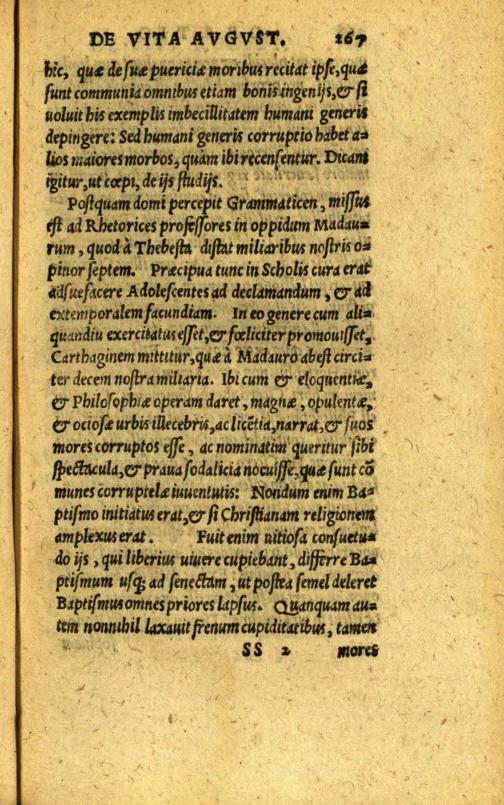 DE VITA AVGVST. 267
hic, quæ de suæ puericiæ moribus recitat ipse, quæ
sunt communia omnibus etiam bonis ingenijs, & si
uoluit his exemplis imbecillitatem humani generis
depingere: Sed humani generis corruptio habet a=
lios maiores morbos, quàm ibi recensentur. Dicam
igitur, ut cœpi, de ijs studijs.
Postquam domi percepit Grammaticen, missus
est ad Rhetorices professores in oppidum Madau=
rum, quod à Thebesta distat miliaribus nostris o=
pinor septem. Præcipua tunc in Scholis cura erat
adsuefacere Adolescentes ad declamandum, & ad
extemporalem facundiam. In eo genere cum ali=
quandiu exercitatus esset, & fœliciter promouisset,
Carthaginem mittitur, quæ à Madauro abest circi=
ter decem nostra miliaria. Ibi cum & eloquentiæ,
& Philosophiæ operam daret, magnæ, opulentæ,
& ociosæ urbis illecebris, ac licẽtia, narrat, & suos
mores corruptos esse, ac nominatim queritur sibi
spectacula, & praua sodalicia nocuisse, quæ sunt cõ
munes corruptelæ iuuentutis: Nondum enim Ba=
ptismo initiatus erat, & si Christianam religionem
amplexus erat. Fuit enim uitiosa consuetu=
do ijs, qui liberius uiuere cupiebant, differre Ba=
ptismum usq; ad senectam, ut postea semel deleret
Baptismus omnes priores lapsus. Quanquam au=
tem nonnihil laxauit frenum cupiditatibus, tamen
SS 2 mores